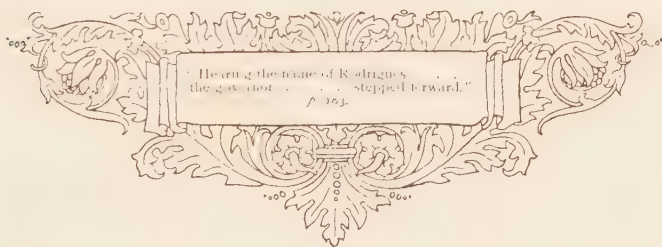 "Hearing the name of Rodrigues . .
the governor . . . stepped forward."
p. 103.